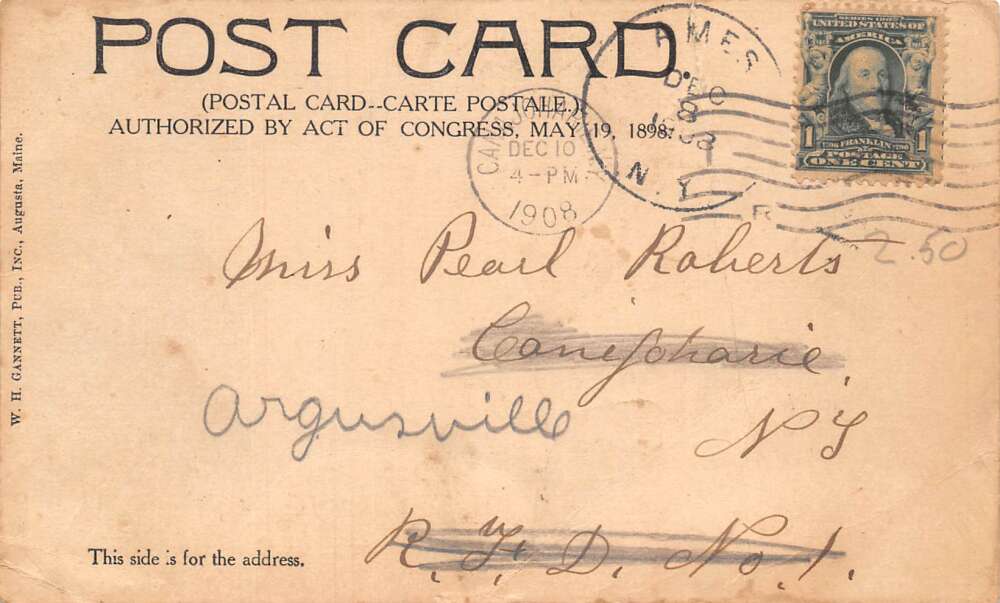 POST CARD
(POSTAL CARD--CARTE POSTALE.)
AUTHORIZED BY ACT OF CONGRESS, MAY 19, 1898.
AMES
DEC
8
1908
N.Y.
DEC 10
4-PM
1908
R
SERIES 1902
UNITED STATES OF
AMERICA
1 1
1706 FRANKLIN 1790
POSTAGE
ONE CENT
2.50
Miss Pearl Roberts
Canajoharie,
Argusville
N Y
R. F. D. No. 1.
This side is for the address.
W. H. GANNETT, PUB., INC., Augusta, Maine.